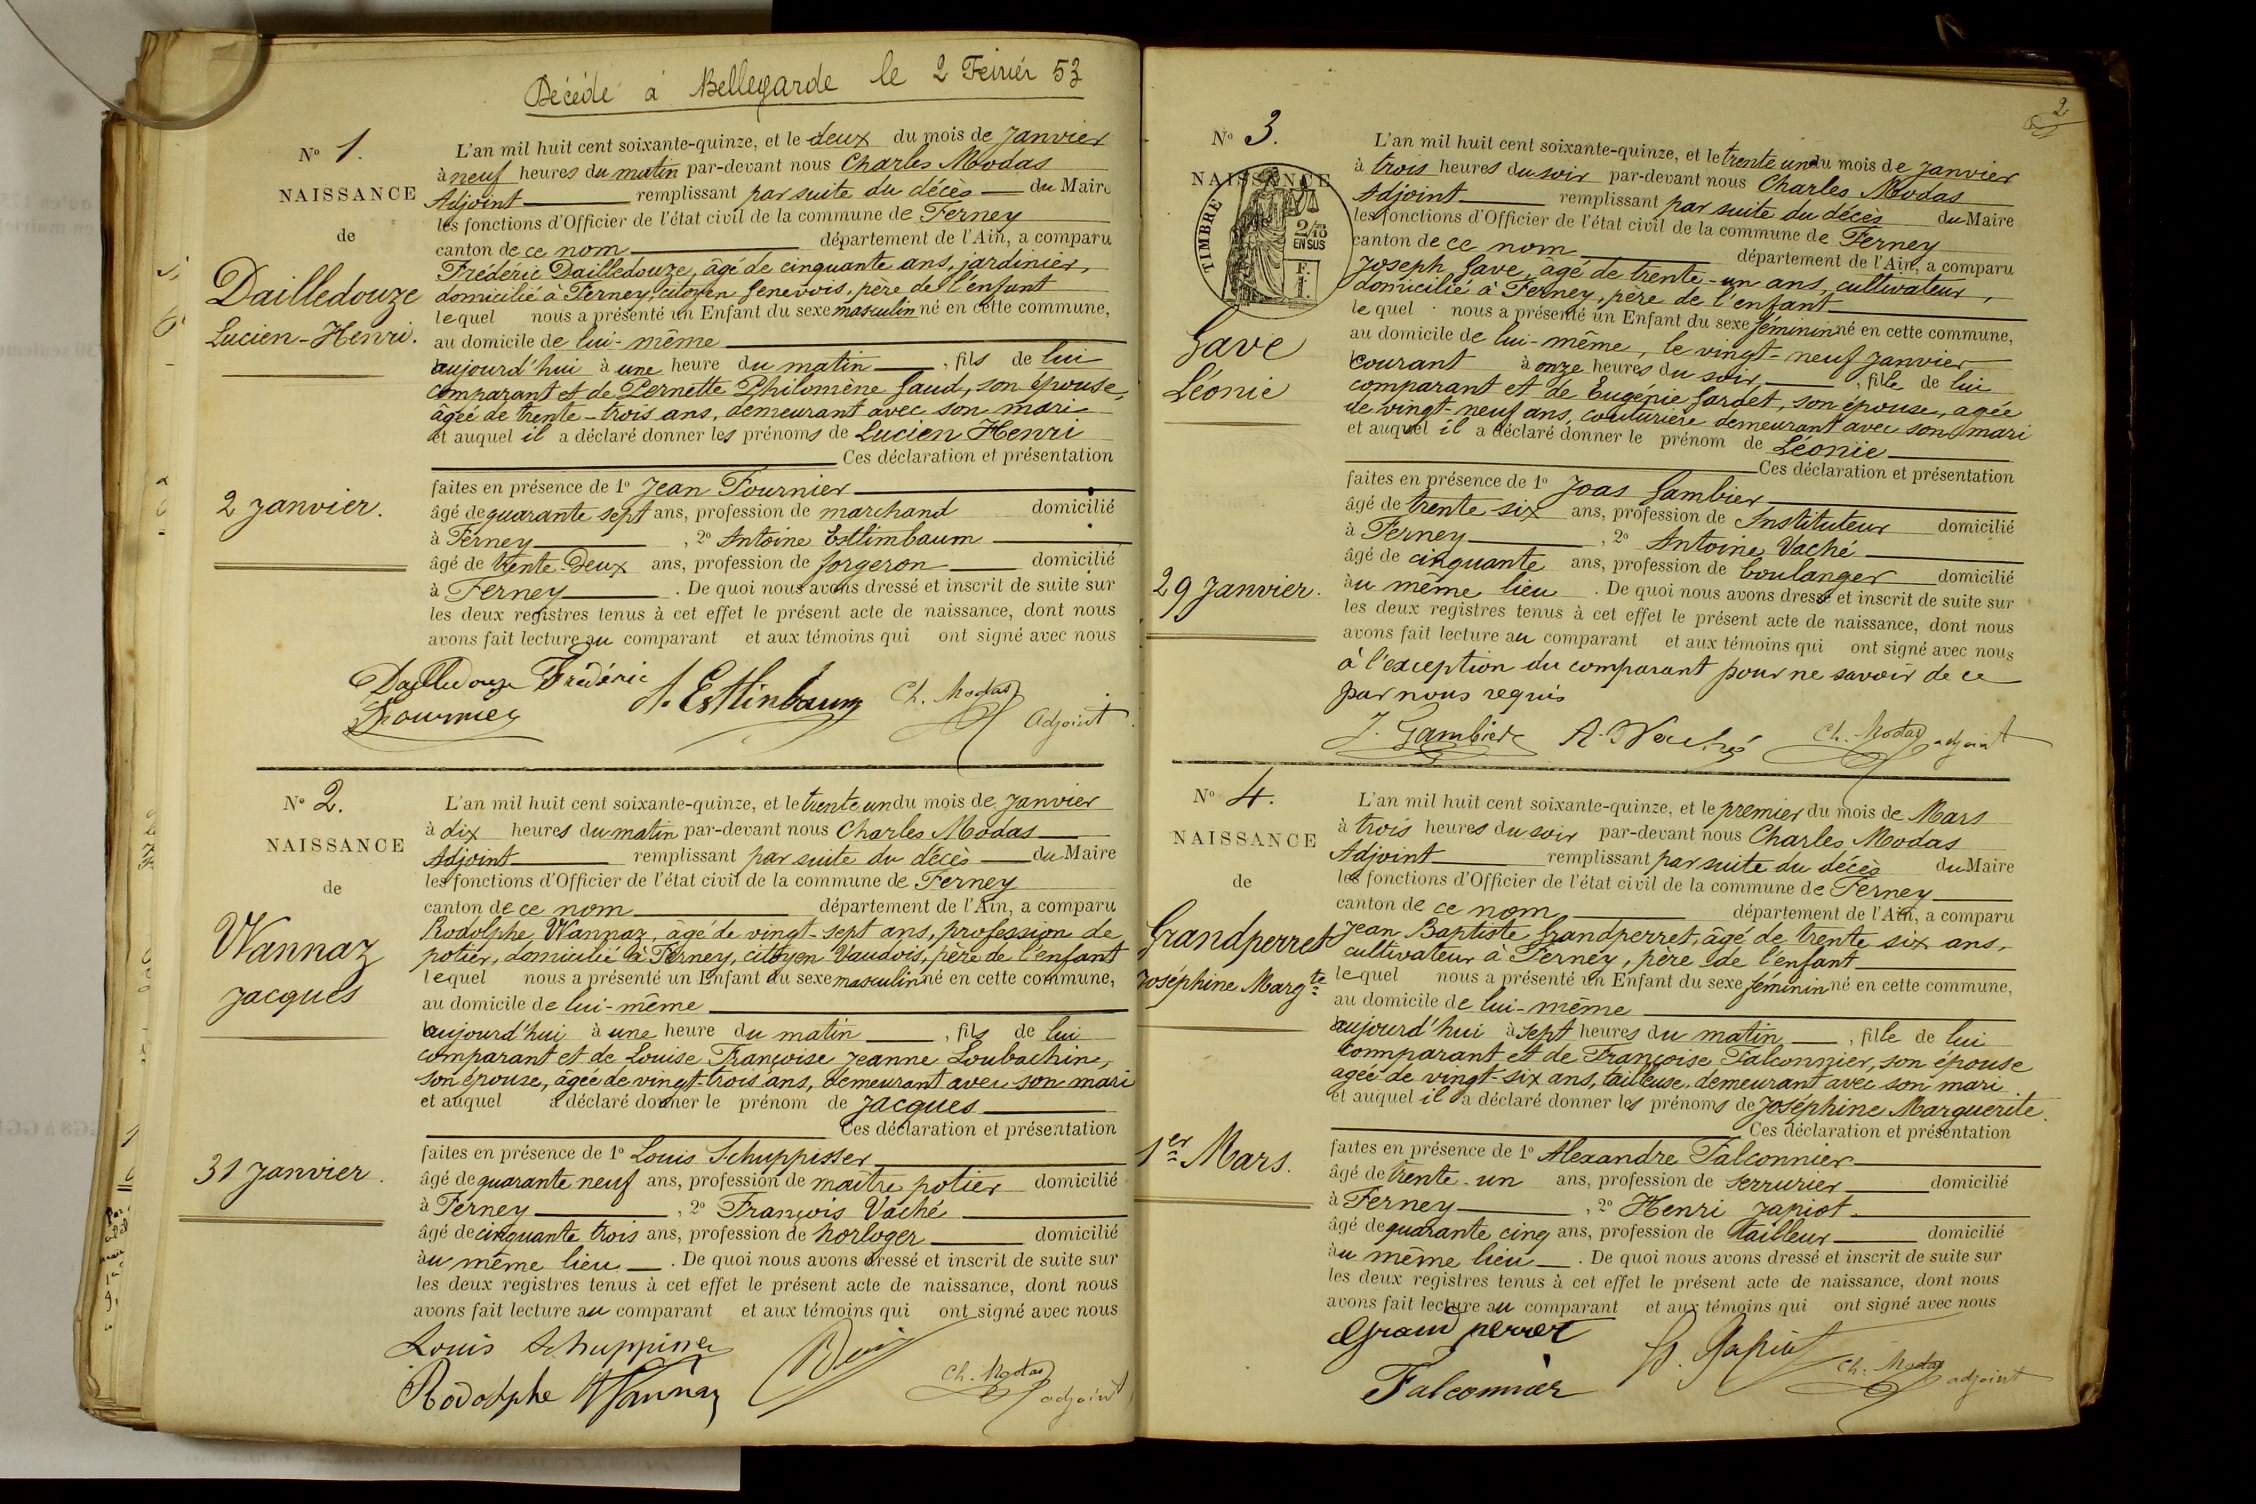 Décédé à Bellegarde le 2 Fevrier 53
N° 1.
NAISSANCE
de
Dailledouze
Lucien-Henri.
2 Janvier.
L'an mil huit cent soixante-quinze, et le deux du mois de Janvier
à neuf heures du matin par-devant nous Charles Modas
Adjoint remplissant par suite du décès du Maire
les fonctions d'Officier de l'état civil de la commune de Ferney
canton de ce nom département de l'Ain, a comparu
Frédéric Dailledouze, âgé de cinquante ans, jardinier,
domicilié à Ferney, citoyen Genevois, père de l'enfant
lequel nous a présenté un Enfant du sexe masculin né en cette commune,
au domicile de lui-même
aujourd'hui à une heure du matin, fils de lui
comparant et de Pernette Philomène Gaud, son épouse,
âgée de trente-trois ans, demeurant avec son mari
et auquel il a déclaré donner les prénoms de Lucien Henri
Ces déclaration et présentation
faites en présence de 1° Jean Fournier
âgé de quarante sept ans, profession de marchand domicilié
à Ferney, 2° Antoine Estlimbaum
âgé de trente-deux ans, profession de forgeron domicilié
à Ferney. De quoi nous avons dressé et inscrit de suite sur
les deux registres tenus à cet effet le présent acte de naissance, dont nous
avons fait lecture au comparant et aux témoins qui ont signé avec nous
Dailledouze Frédéric
A. Estlinbaum Ch. Modas
Fournier Adjoint.
N° 2.
NAISSANCE
de
Wannaz
Jacques
31 Janvier.
L'an mil huit cent soixante-quinze, et le trente un du mois de Janvier
à dix heures du matin par-devant nous Charles Modas
Adjoint remplissant par suite du décès du Maire
les fonctions d'Officier de l'état civil de la commune de Ferney
canton de ce nom département de l'Ain, a comparu
Rodolphe Wannaz, âgé de vingt-sept ans, profession de
potier, domicilié à Ferney, citoyen Vaudois, père de l'enfant
lequel nous a présenté un Enfant du sexe masculin né en cette commune,
au domicile de lui-même
aujourd'hui à une heure du matin, fils de lui
comparant et de Louise Françoise Jeanne Loubachine,
son épouse, âgée de vingt-trois ans, demeurant avec son mari
et auquel a déclaré donner le prénom de Jacques
Ces déclaration et présentation
faites en présence de 1° Louis Schuppisser
âgé de quarante neuf ans, profession de maître potier domicilié
à Ferney, 2° François Vaché
âgé de cinquante trois ans, profession de horloger domicilié
au même lieu. De quoi nous avons dressé et inscrit de suite sur
les deux registres tenus à cet effet le présent acte de naissance, dont nous
avons fait lecture au comparant et aux témoins qui ont signé avec nous
Louis Schuppisser
Rodolphe Wannaz Ch. Modas adjoint
2
N° 3.
NAISSANCE
TIMBRE
2/10 EN SUS
F. 1.
Gave
Léonie
29 Janvier.
L'an mil huit cent soixante-quinze, et le trente un du mois de Janvier
à trois heures du soir par-devant nous Charles Modas
Adjoint remplissant par suite du décès du Maire
les fonctions d'Officier de l'état civil de la commune de Ferney
canton de ce nom département de l'Ain, a comparu
Joseph Gave, âgé de trente-un ans, cultivateur,
domicilié à Ferney, père de l'enfant
lequel nous a présenté un Enfant du sexe féminin né en cette commune,
au domicile de lui-même, le vingt-neuf Janvier
courant à onze heures du soir, fille de lui
comparant et de Eugénie Gardet, son épouse, agée
de vingt-neuf ans, couturière demeurant avec son mari
et auquel il a déclaré donner le prénom de Léonie
Ces déclaration et présentation
faites en présence de 1° Joas Gambier
âgé de trente six ans, profession de Instituteur domicilié
à Ferney, 2° Antoine Vaché
âgé de cinquante ans, profession de boulanger domicilié
au même lieu. De quoi nous avons dressé et inscrit de suite sur
les deux registres tenus à cet effet le présent acte de naissance, dont nous
avons fait lecture au comparant et aux témoins qui ont signé avec nous
à l'exception du comparant pour ne savoir de ce
par nous requis
J. Gambier A. Vaché Ch. Modas adjoint
N° 4.
NAISSANCE
de
Grandperret
Joséphine Margte
1er Mars.
L'an mil huit cent soixante-quinze, et le premier du mois de Mars
à trois heures du soir par-devant nous Charles Modas
Adjoint remplissant par suite du décès du Maire
les fonctions d'Officier de l'état civil de la commune de Ferney
canton de ce nom département de l'Ain, a comparu
Jean Baptiste Grandperret, âgé de trente six ans,
cultivateur à Ferney, père de l'enfant
lequel nous a présenté un Enfant du sexe féminin né en cette commune,
au domicile de lui-même
aujourd'hui à sept heures du matin, fille de lui
comparant et de Françoise Falconnier, son épouse
agée de vingt-six ans, tailleuse, demeurant avec son mari
et auquel il a déclaré donner les prénoms de Joséphine Marguerite.
Ces déclaration et présentation
faites en présence de 1° Alexandre Falconnier
âgé de trente-un ans, profession de serrurier domicilié
à Ferney, 2° Henri Japiot
âgé de quarante cinq ans, profession de tailleur domicilié
au même lieu. De quoi nous avons dressé et inscrit de suite sur
les deux registres tenus à cet effet le présent acte de naissance, dont nous
avons fait lecture au comparant et aux témoins qui ont signé avec nous
Grand perret
H. Japiot Ch. Modas adjoint
Falconnier